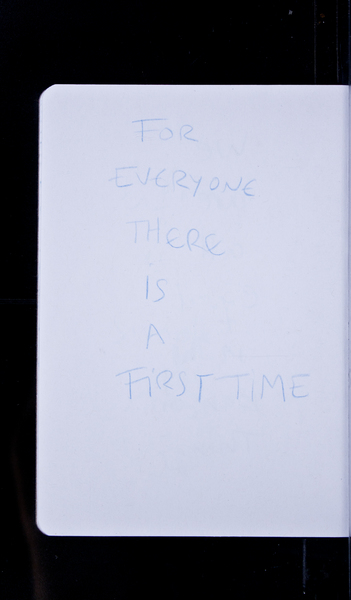 FOR
EVERYONE
THERE
IS
A
FiRST TIME